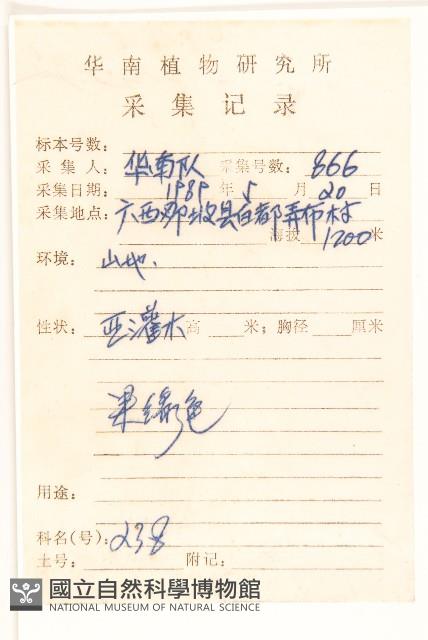 华南植物研究所
采集记录
标本号数：
采集人： 华南队 采集号数： 866
采集日期： 1989 年 5 月 20 日
采集地点： 广西那坡县百都弄布村
海拔 1200 米
环境： 山地.
性状： 亚灌木 高 米；胸径 厘米
果绿色
用途：
科名(号)： 238
土号： 附记：
國立自然科學博物館
NATIONAL MUSEUM OF NATURAL SCIENCE